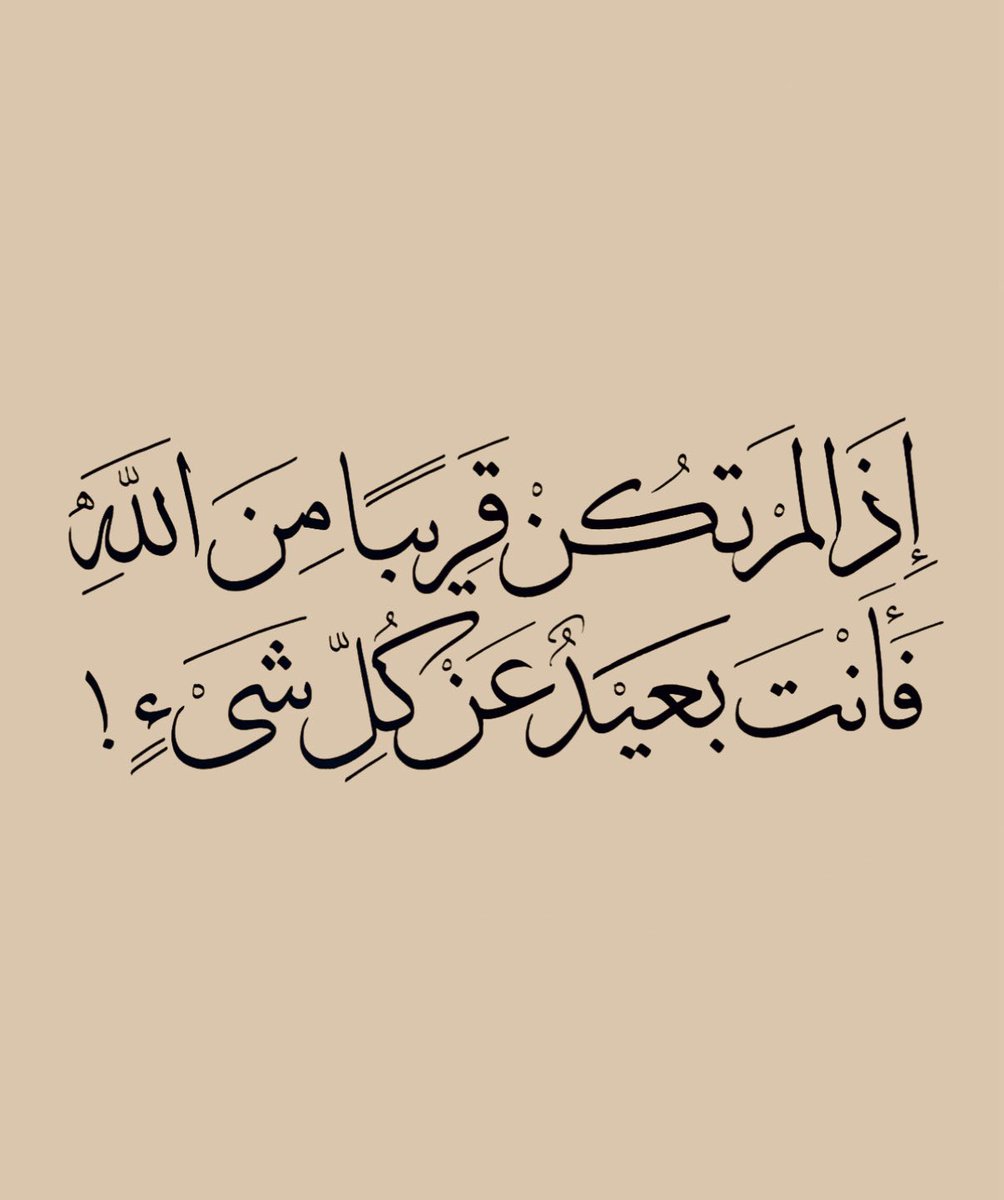 إِذَا لَمْ تَكُنْ قَرِيبًا مِنَ اللَّهِ
فَأَنْتَ بَعيْدٌ عَنْ كُلِّ شَىْءٍ !